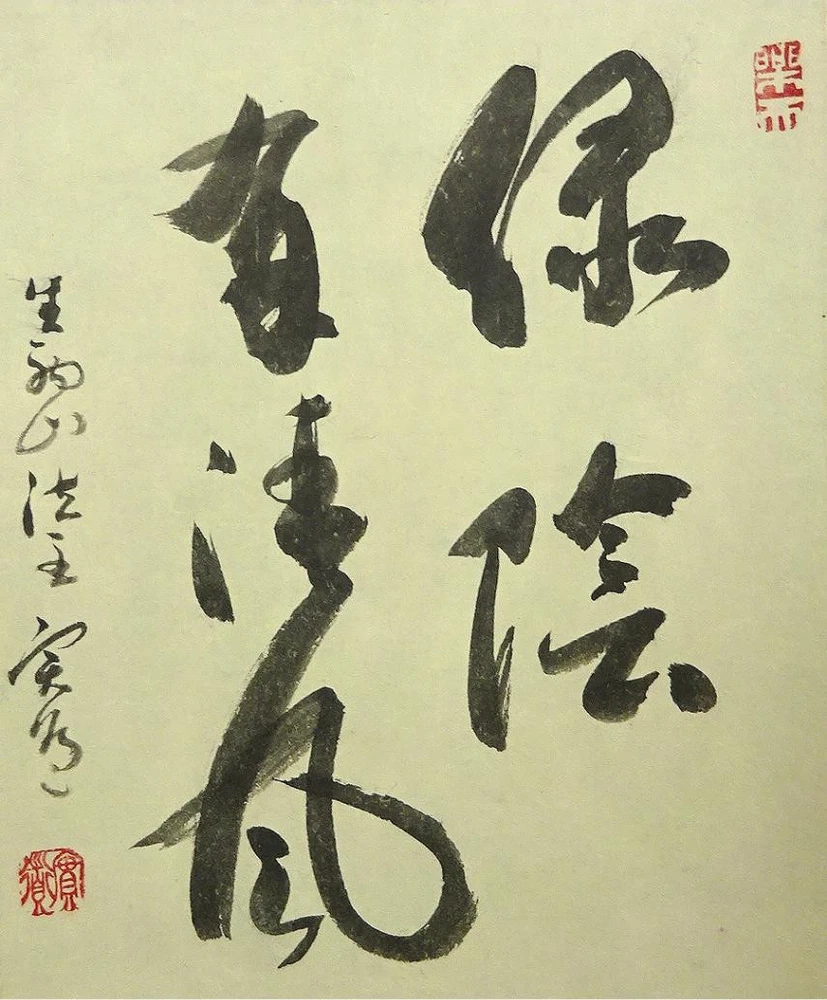 緑陰
有清風
生駒山法主実道